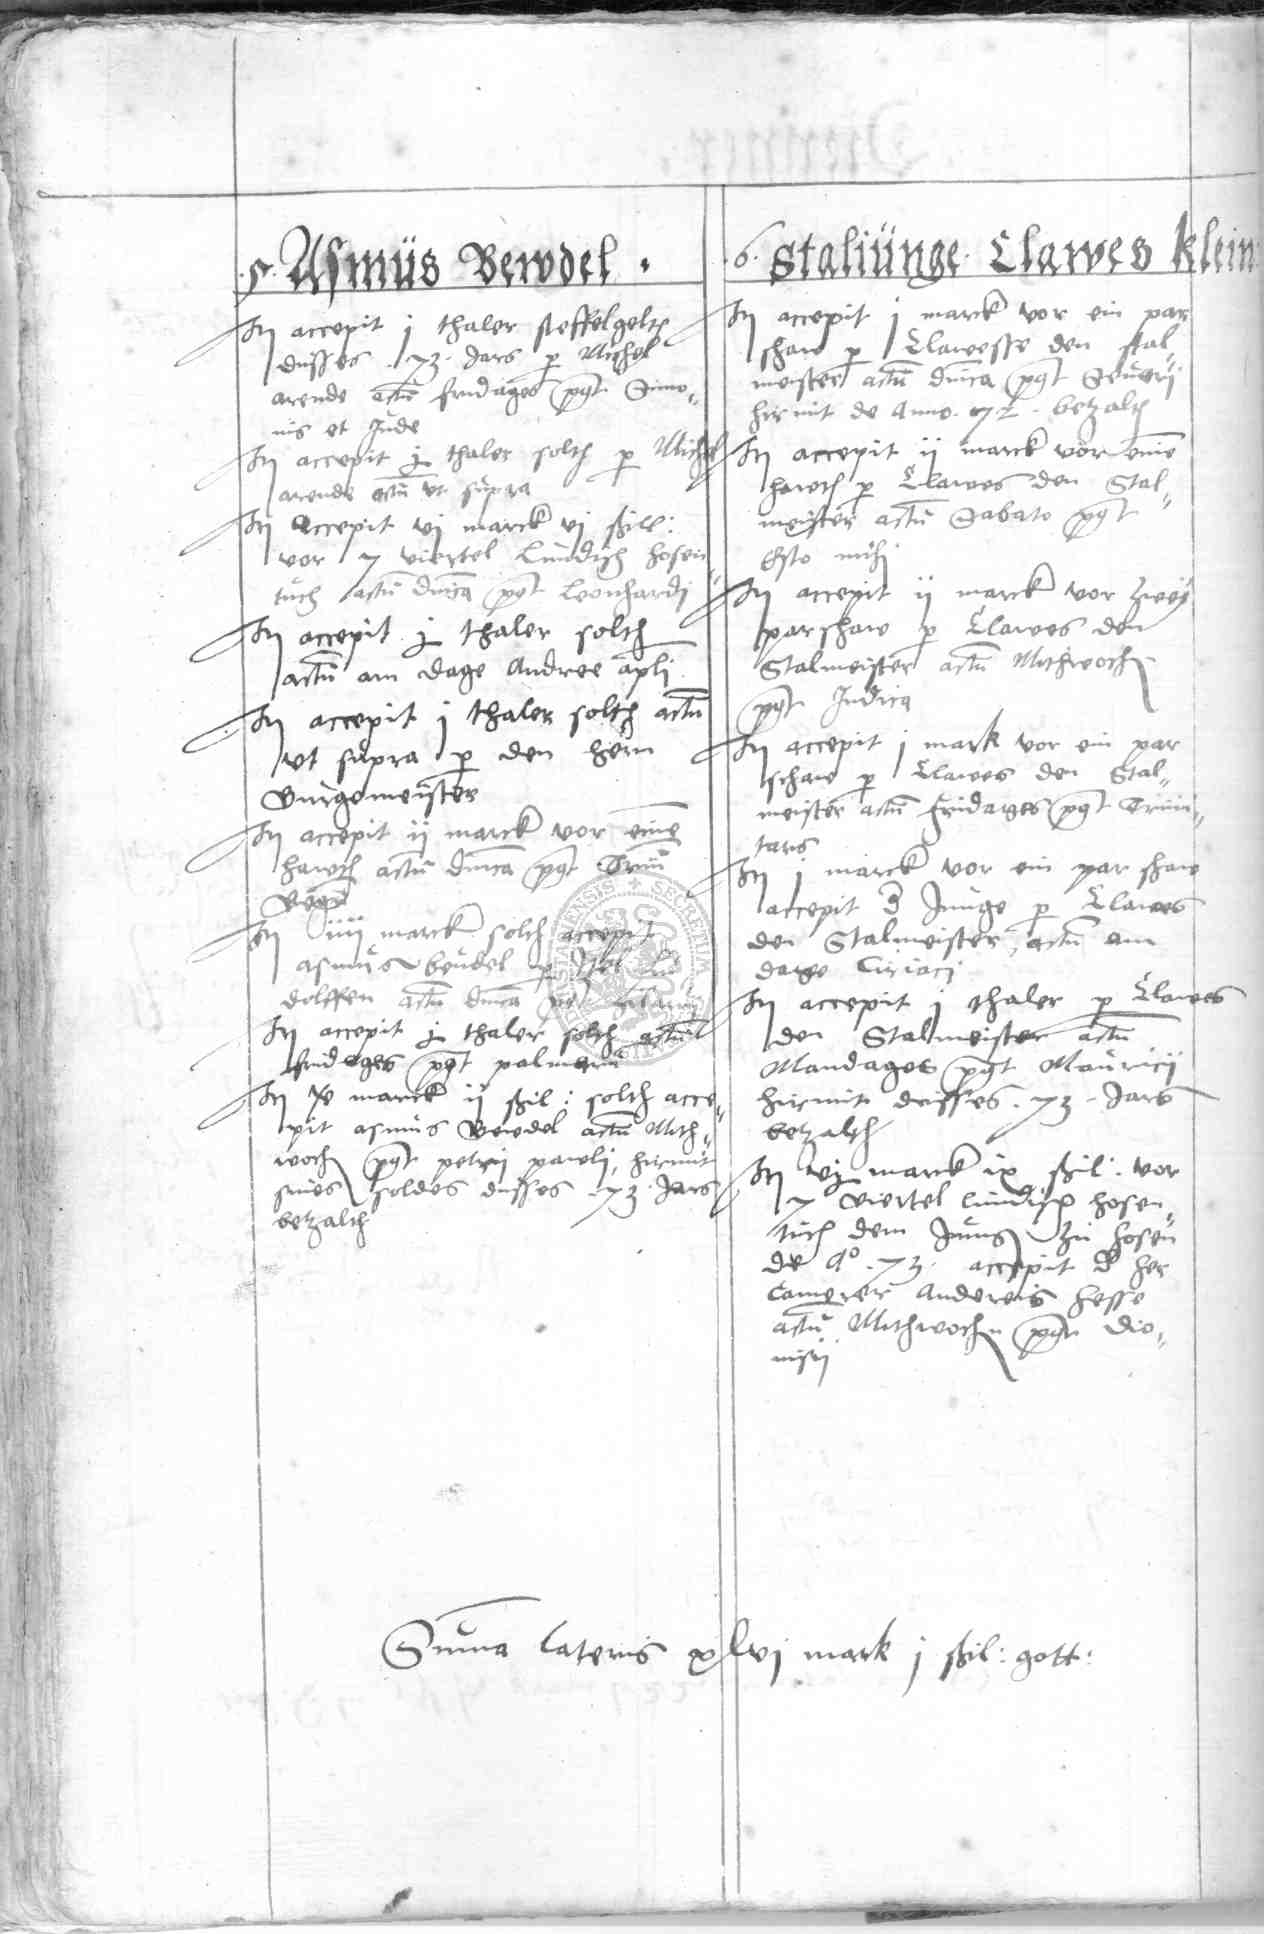 .5. Asmüs Bewdel .
Itm accepit j thaler steffelgelth
dusses .73. Jars p Michel
arende actu fridages pgt Simo„
nis et Jude
Itm accepit j thaler solth p Michel
arende actu vt supra
Itm Accepit vj marck vj ßil:
vor 7 viertel Lundisch hosen„
tuch actu dnica pgt Leonhardj
Itm accepit j thaler solth
actu am dage Andree apli
Itm accepit j thaler solth actu
vt supra p den hern
Burgemeister
Itm accepit ij marck vor eine
actu dnica pgt Trium
Regu
Itm iiij marck solth accepit
asmus beudel p
dolffen actu dnica
Itm accepit j thaler solth actu
fridages pgt palmarum
Itm marck ij ßil: solth acce„
pit asmus Bewdel actu Mith„
woch pgt petri pawlj, hirmit
sines soldes dusses .73. Jars
betzalth
.6. Staliünge Clawes klein
Itm accepit j marck vor ein par
schaw p Clawesse den stal„
meister actu dnica pgt Seuerij
hirmit de Anno .72. betzalth
Itm accepit ij marck vor eine
p Clawes den Stal„
meister actu Sabato pgt
Esto mihi
Itm accepit ij marck vor zweÿ
par schaw p Clawes den
Stalmeister actu Mithwoch
pgt Judica
Itm accepit j mark vor ein par
schaw p Clawes den Stal„
meister actu fridages pgt Trini„
tatis
Itm j marck vor ein par schaw
accepit d Junge p Clawes
den Stalmeister, actu am
dage Ciriacj
Itm accepit j thaler p Clawes
den Stalmeister actu
Mandages pgt Mauricij
hirmit disses .73. Jars
betzalth
Itm vj marck ix ßil: vor
7 viertel lundisch hosen„
tuch dem Jungen zu hosen
de Ao .73. accepit d her
Camerer Andereis hesse
actu Mithwochen pgt Dio„
nisij
Suma lateris xlvj mark j ßil: gott: